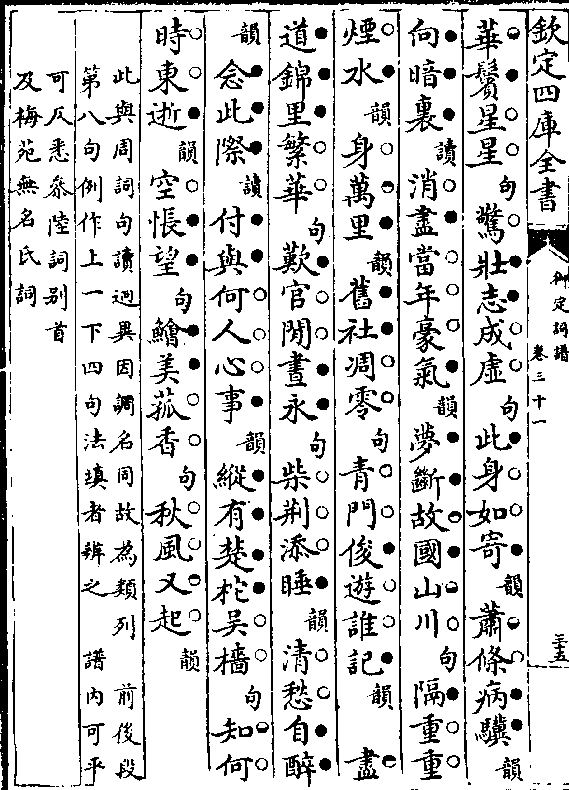 欽定四庫全書
御定詞譜
卷三十一
三五
華鬢星星句驚壯志成虛句此身如寄韻蕭條病驥韻
向暗裏讀消盡當年豪氣韻夢斷故國山川句隔重重
煙水韻身萬里韻舊社凋零句青門俊遊誰記韻　盡
道錦里繁華句歎官閒晝永句柴荆添睡韻清愁自醉
韻念此際讀付與何人心事韻縱有楚柁吳檣句知何
時東逝韻空悵望句鱠美菰香句秋風又起韻
此與周詞句讀迥異因調名同故為類列　前後段
第八句例作上一下四句法填者辨之　譜内可平
可仄悉叅陸詞别首
及梅苑無名氏詞